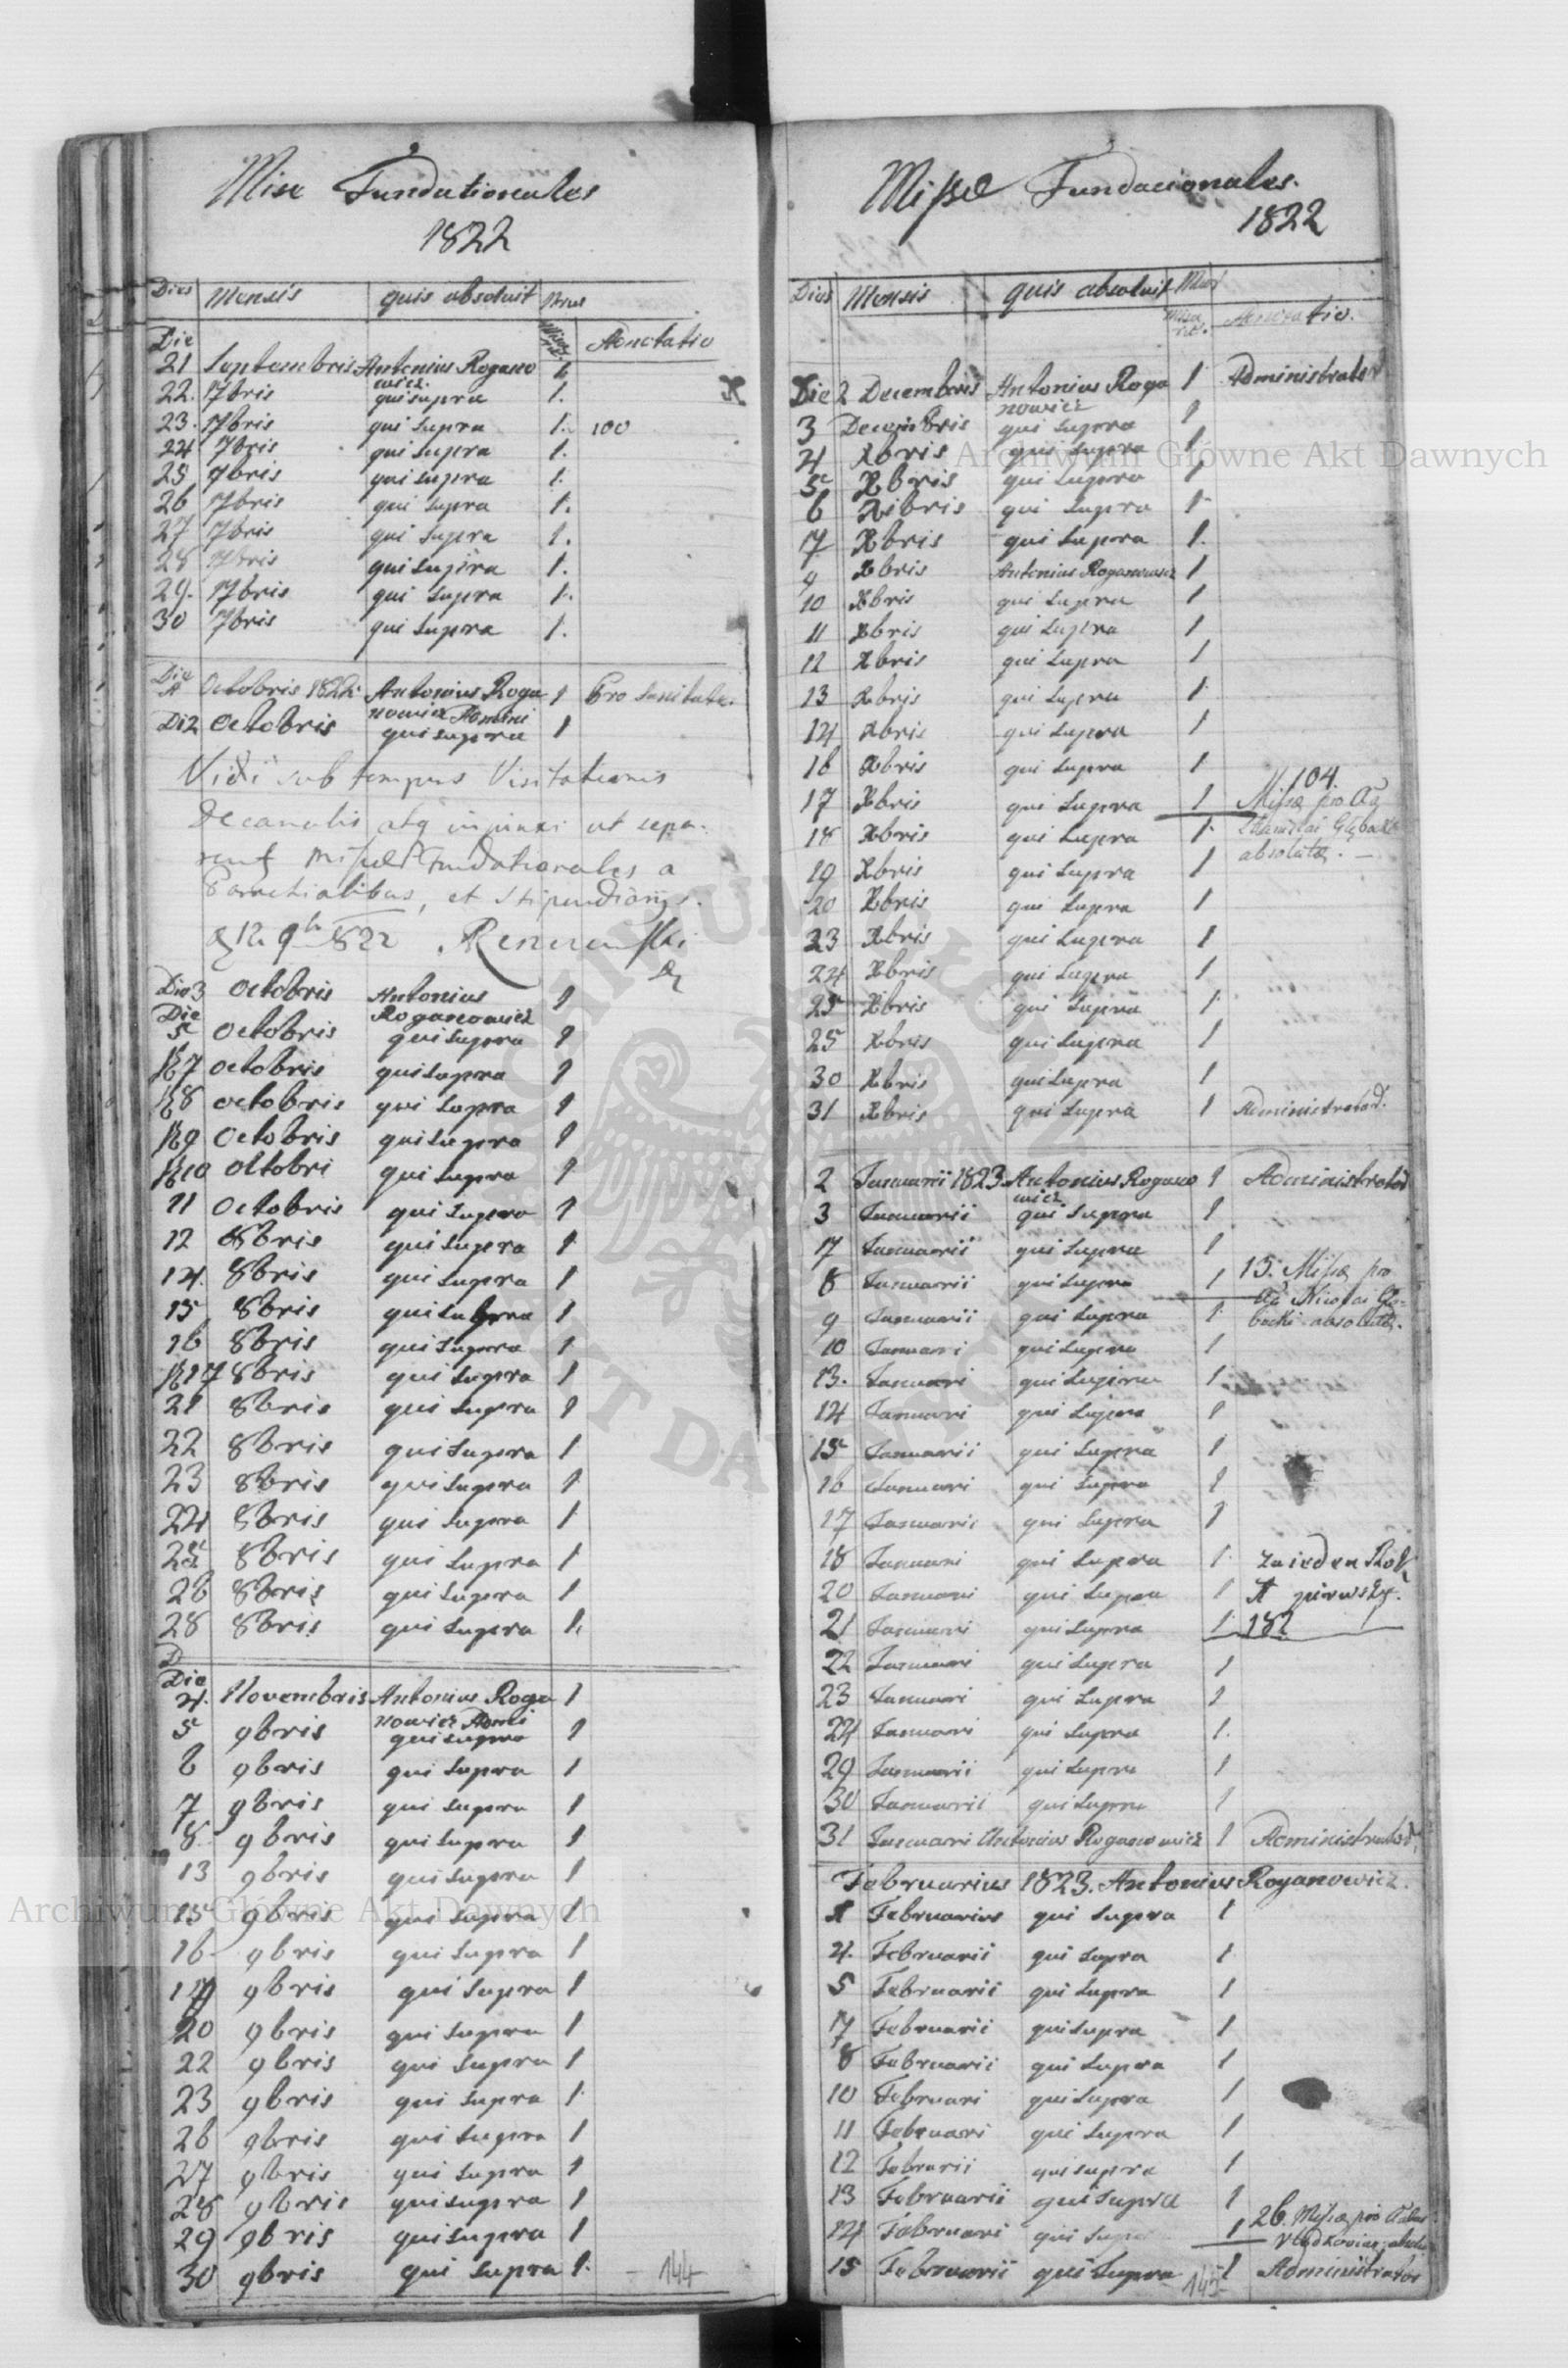 Missae Fundationales
1822
Dies Mensis quis absolvit Nrus
Missarum Annotatio
Die
21 Septembris Antonius Rogano 1
wicz
22. 7bris qui supra 1.
23. 7bris qui supra 1. 100
24 7bris qui supra 1.
25 7bris qui supra 1.
26 7bris qui supra 1.
27 7bris qui supra 1.
28 7bris qui supra 1.
29. 7bris qui supra 1.
30 7bris qui supra 1.
Die
1 Octobris 1822 Antonius Roga 1 Pro Sanitate.
nowicz Admini
Di2 Octobris qui supra 1
Vidi sub tempus Visitationis
Decanalis atq injunxi ut sepa-
rent Missas Fundationales a
Parochialibus, et Stipendiariis.
d 12 9br 822
Die 3 Octobris Antonius 1
Roganowicz
Die
5 Octobris qui supra 1
7 Octobris qui supra 1
8 octobris qui supra 1
9 Octobris qui supra 1
10 Octobri qui supra 1
11 Octobris qui supra 1
12 8bris qui supra 1
14. 8bris qui supra 1
15 8bris qui supra 1
16 8bris qui supra 1
17 8bris qui supra 1
21 8bris qui supra 1
22 8bris qui supra 1
23 8bris qui supra 1
24 8bris qui supra 1
25 8bris qui supra 1
26 8bris qui supra 1
28 8bris qui supra 1.
D
Die
4. Novembris Antonius Roga 1
nowicz Admi
5 9bris qui supra 1
6 9bris qui supra 1
7 9bris qui supra 1
8 9bris qui supra 1
13 9bris qui supra 1
15 9bris qui supra 1
16 9bris qui supra 1
19 9bris qui supra 1
20 9bris qui supra 1
22 9bris qui supra 1
23 9bris qui supra 1
26 9bris qui supra 1
27 9bris qui supra 1
28 9bris qui supra 1
29 9bris qui supra 1
30 9bris qui supra 1.
144
Missae Fundacionales.
1822
Dies Mensis quis absolvit
Annotatio.
Die 2 Decembris Antonius Roga 1 Administrator
nowicz
3 Decembris qui supra 1
4 Xbris qui supra 1
5 Xbris qui supra 1
6 Xbris qui supra 1
7 Xbris qui supra 1.
9 Xbris Antonius Roganowicz 1
10 Xbris qui supra 1
11 Xbris qui supra 1
12 Xbris qui supra 1
13 Xbris qui supra 1
14 Xbris qui supra 1
16 Xbris qui supra 1
104.
17 Xbris qui supra 1 Missae pro
18 Xbris qui supra 1 Stanislai Głębocki
absolutae.
19 Xbris qui supra 1
20 Xbris qui supra 1
23 Xbris qui supra 1
24 Xbris qui supra 1
25 Xbris qui supra 1
25 Xbris qui supra 1
30 Xbris qui supra 1
31 Xbris qui supra 1 Administrator.
2 Januarii 1823 Antonius Rogano 1 Administrator
wicz
3 Januarii qui supra 1
7 Januarii qui supra 1
8 Januarii qui supra 1 15. Missae pro
9 Januarii qui supra 1 Nicolai Głę-
bocki absolutae.
10 Januari qui supra 1
13. Januari qui supra 1
14 Januari qui supra 1
15 Januarii qui supra 1
16 Januari qui supra 1
17 Januarii qui supra 1
18 Januari qui supra 1 za ieden Rok
20 Januari qui supra 1 pierwszy.
21 Januari qui supra 1 182
22 Januari qui supra 1
23 Januari qui supra 1
24 Januari qui supra 1
29 Januarii qui supra 1
30 Januarii qui supra 1
31 Januari Antonius Roganowicz 1 Administrator
Februarius 1823. Antonius Roganowicz.
1 Februarius qui supra 1
4. Februarii qui supra 1
5 Februarii qui supra 1
7 Februarii qui supra 1
8 Februarii qui supra 1
10 Februari qui supra 1
11 Februari qui supra 1
12 Februarii qui supra 1
13 Februarii qui supra 1
14 Februari qui supra 1 26. Missae pro
15 Februarii qui supra 1 Administrator
145
Archiwum Główne Akt Dawnych
Archiwum Główne Akt Dawnych